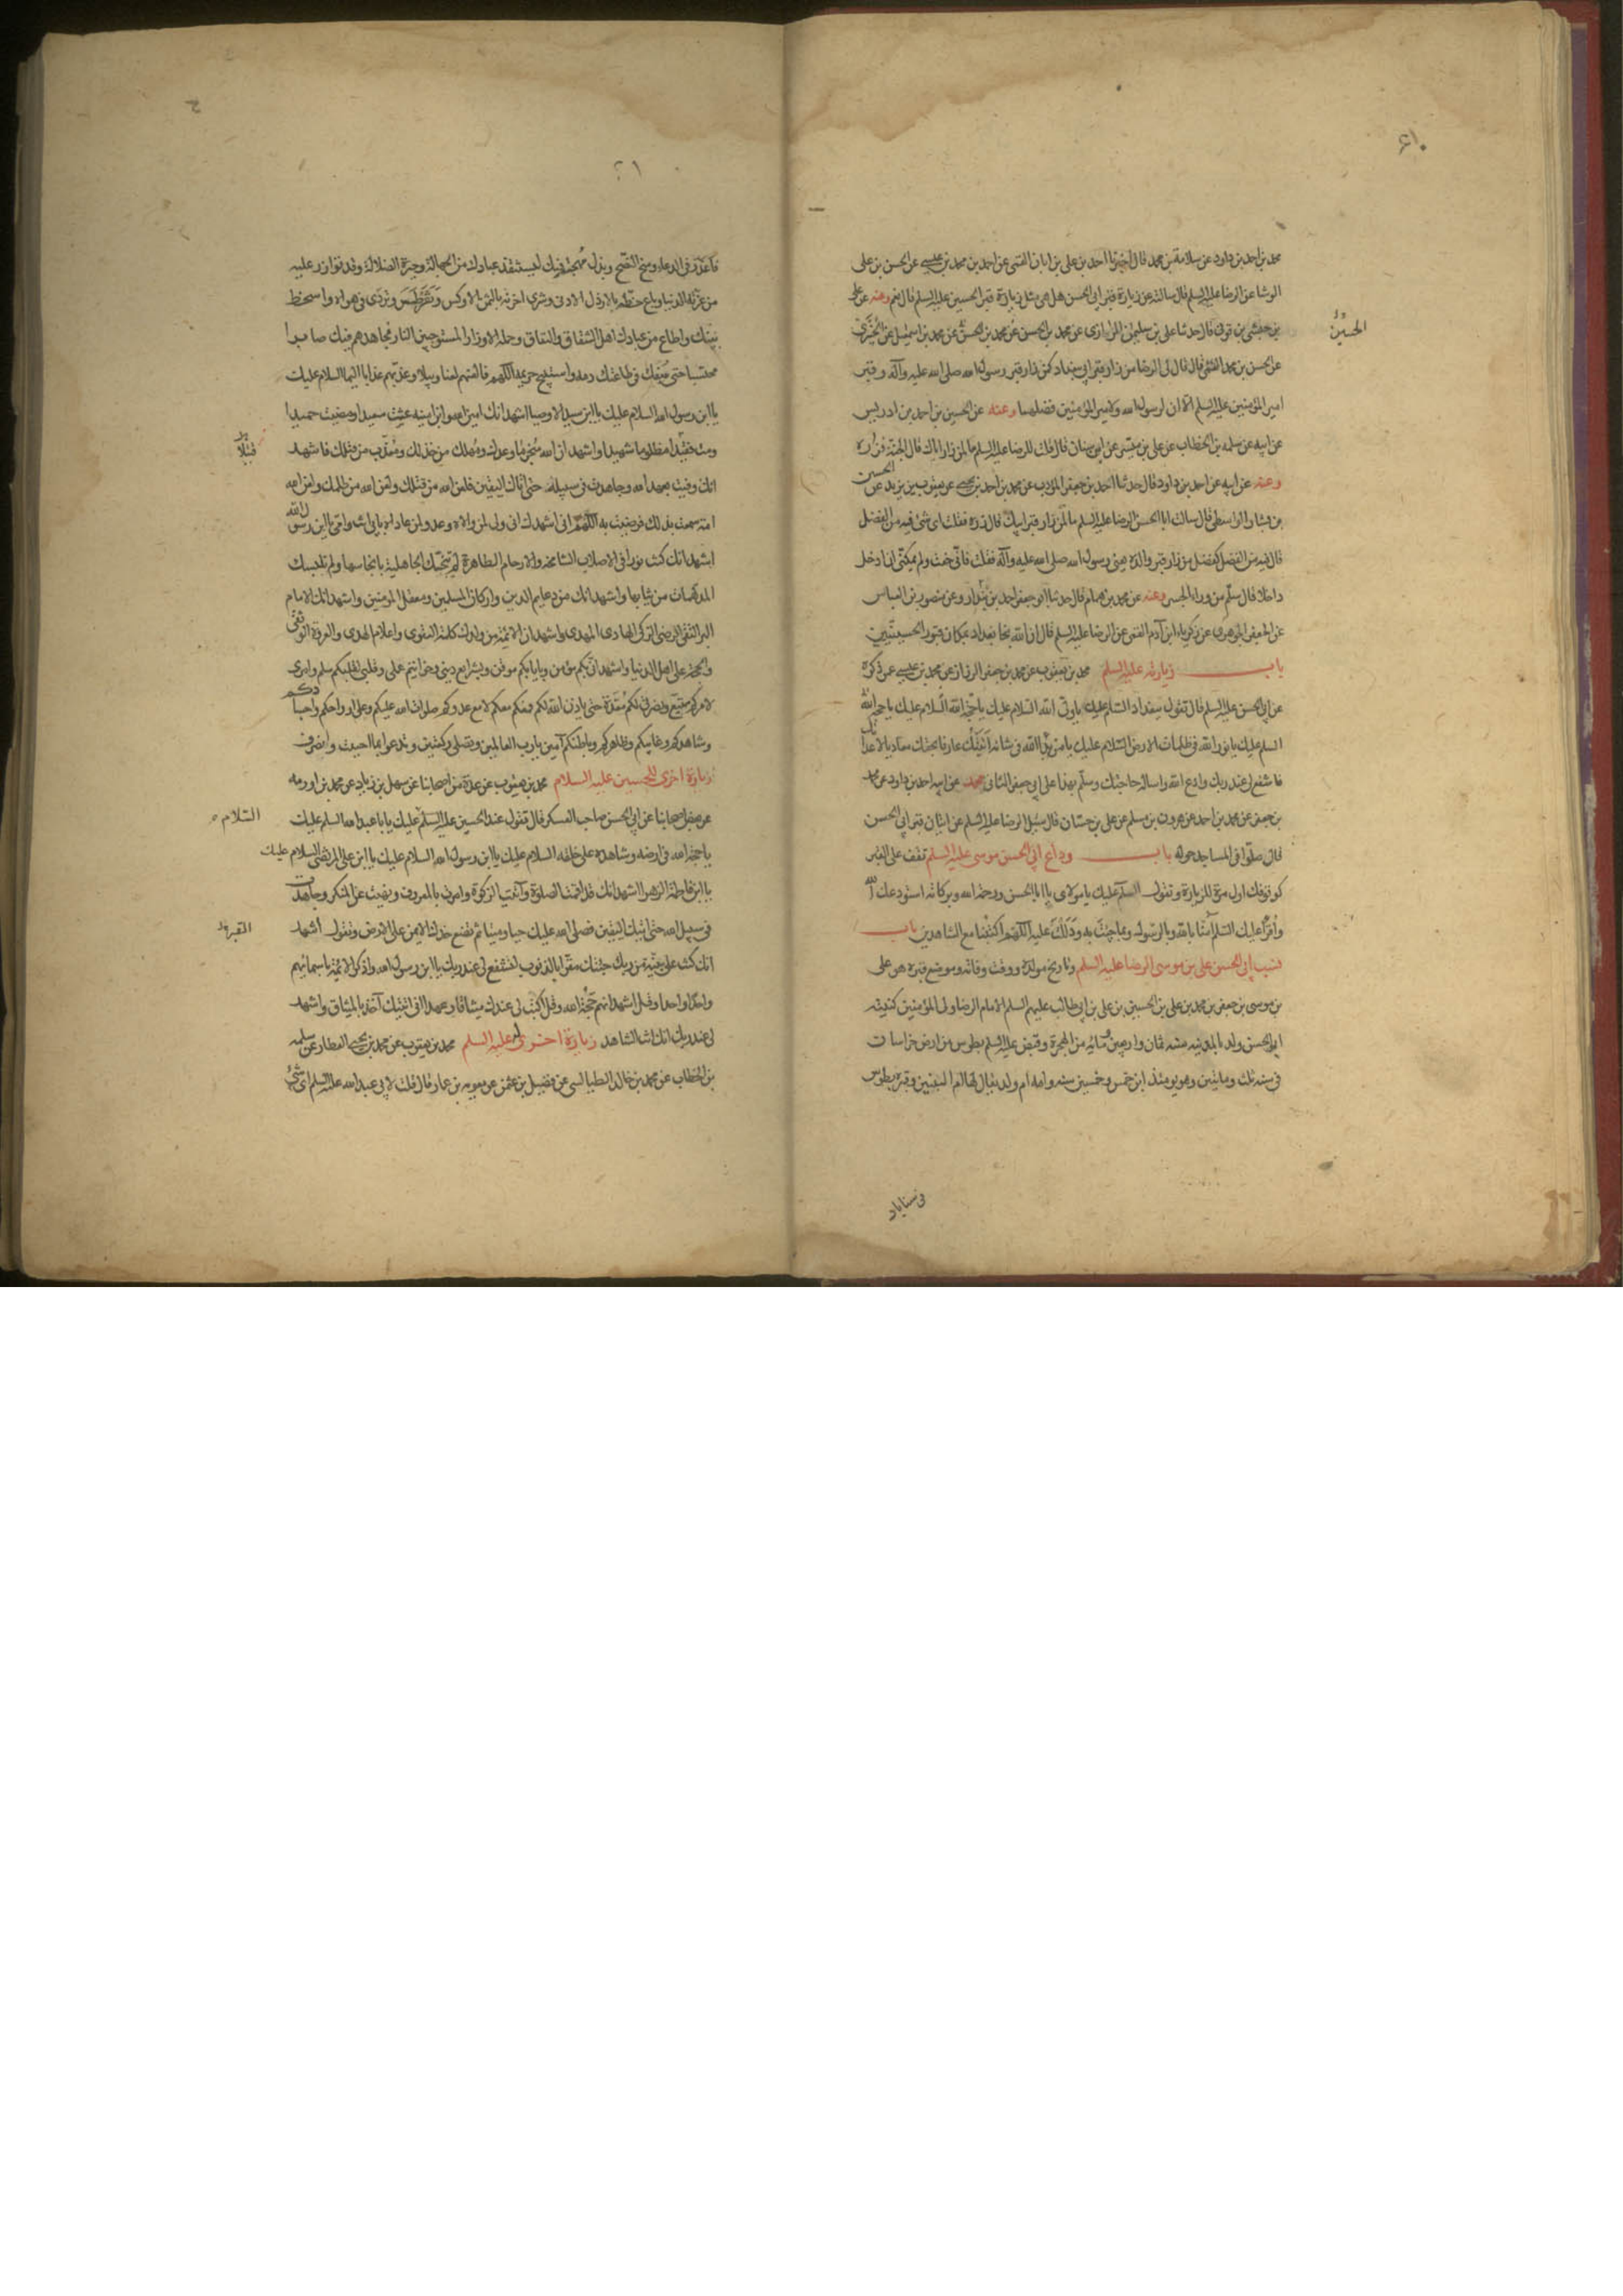 محمد بن احمد بن داود عن سلامة بن محمد قال اخبرنا احمد بن علي بن ابان القمي عن احمد بن محمد بن عيسى عن الحسن بن علي
الوشا عن الرضا عليه السلم قال سالته عن زيارة قبر ابي الحسن هل هي مثل زيارة قبر الحسين عليه السلم قال نعم وعنه عن علي
بن حبشي بن قوني قال حدثنا علي بن سليمان الرازي عن محمد بن الحسن عن محمد بن الحسن عن محمد بن اسمعيل عن الخيبري
الحسين
عن الحسن بن محمد القمي قال قال لي الرضا من زار قبر ابي ببغداد كمن زار قبر رسول الله صلى الله عليه وآله وقبر
امير المؤمنين عليه السلم الا ان لرسول الله ولامير المؤمنين فضلهما وعنه عن الحسين بن احمد بن ادريس
عن ابيه عن سلمه بن الخطاب عن علي بن ميسر عن ابن سنان قال قلت للرضا عليه السلم ما لمن زار اباك قال الجنة فزره
وعنه عن ابيه عن احمد بن داود قال حدثنا احمد بن جعفر المؤدب عن محمد بن احمد بن يحيى عن يعقوب بن يزيد عن الحسين
بن بشار الواسطي قال سالت ابا الحسن الرضا عليه السلم ما لمن زار قبر ابيك قال زره فقلت اي شئ فيه من الفضل
قال فيه من الفضل كفضل من زار قبر والده يعني رسول الله صلى الله عليه وآله فقلت فاني خفت ولم يمكني ان ادخل
داخلا قال سلم من وراء الجسر وعنه عن محمد بن همام قال حدثنا ابو جعفر احمد بن بندار وعن منصور بن العباس
عن الجعفي الجوهري عن زكرياء ابن آدم القمي عن الرضا عليه السلم قال ان الله نجا بغداد بمكان قبور الحسينيين
باب زيارته عليه السلم محمد بن يعقوب عن محمد بن جعفر الرزاز عن محمد بن عيسى عمن ذكره
عن ابي الحسن عليه السلم قال تقول ببغداد السلم عليك يا ولي الله السلام عليك يا حجة الله السلام عليك يا حجة الله
السلم عليك يا نور الله في ظلمات الارض السلام عليك يا من بدا لله في شانه اتيتك عارفا بحقك معاديا لاعدائك
فاشفع لي عند ربك وادع الله واساله حاجتك وسلم بهذا على ابي جعفر الثاني محمد عن ابيه احمد بن داود عن محمد
بن جعفر عن محمد بن احمد عن هرون بن مسلم عن علي بن حسان قال سئل الرضا عليه السلم عن اتيان قبر ابي الحسن
قال صلوا في المساجد حوله باب وداع ابي الحسن موسى عليه السلم تقف على القبر
كوقوفك اول مرة للزيارة وتقول السلم عليك يا مولاي يا ابا الحسن ورحمة الله وبركاته استودعك الله
واقرأ عليك السلم آمنا بالله وبالرسول وبما جئت به ودللت عليه اللهم اكتبنا مع الشاهدين باب
نسب ابي الحسن علي بن موسى الرضا عليه السلم وتاريخ مولده ووقت وفاته وموضع قبره هو علي
بن موسى بن جعفر بن محمد بن علي بن الحسين بن علي بن ابي طالب عليهم السلم الامام الرضا ولي المؤمنين كنيته
ابو الحسن ولد بالمدينه سنه ثمان واربعين ومائه من الهجرة وقبض عليه السلم بطوس من ارض خراسان
في سنه ثلث ومائتين وهو يومئذ ابن خمس وخمسين سنه وامه ام ولد يقال لها ام البنين وقبره بطوس
في سناباد
فاعذر في الدعاء ومنح النصح وبذل مهجته فيك ليستنقذ عبادك من الجهالة وحيرة الضلالة وقد توازر عليه
من غرته الدنيا وباع حظه بالارذل الادنى وشرى اخرته بالثمن الاوكس وتغطرس وتردى في هواه واسخط
نبيك واطاع من عبادك اهل الشقاق والنفاق وحملة الاوزار المستوجبين النار فجاهدهم فيك صابرا
محتسبا حتى سفك في طاعتك دمه واستبيح حريمه اللهم فالعنهم لعنا وبيلا وعذبهم عذابا اليما السلام عليك
يا ابن رسول الله السلام عليك يا ابن سيد الاوصيا اشهد انك امين الله وابن امينه عشت سعيدا ومضيت حميدا
ومت فقيدا مظلوما شهيدا واشهد ان الله منجز ما وعدك ومهلك من خذلك ومعذب من قتلك فاشهد
قتيلا
انك وفيت بعهد الله وجاهدت في سبيله حتى اتاك اليقين فلعن الله من قتلك ولعن الله من ظلمك ولعن الله
امة سمعت بذلك فرضيت به اللهم اني اشهدك اني ولي لمن والاه وعدو لمن عاداه بابي انت وامي يا ابن رسول الله
اشهد انك كنت نورا في الاصلاب الشامخة والارحام الطاهرة لم تنجسك الجاهلية بانجاسها ولم تلبسك
المدلهمات من ثيابها واشهد انك من دعايم الدين واركان المسلمين ومعقل المؤمنين واشهد انك الامام
البر التقي الرضي الزكي الهادي المهدي واشهد ان الائمة من ولدك كلمة التقوى واعلام الهدى والعروة الوثقى
والحجة على اهل الدنيا واشهد اني بكم مؤمن وبايابكم موقن وبشرايع ديني وخواتيم عملي وقلبي لقلبكم سلم وامري
لامركم متبع ونصرتي لكم معدة حتى ياذن الله لكم فمعكم معكم لا مع عدوكم صلوات الله عليكم وعلى ارواحكم واجسادكم
وشاهدكم وغايبكم وظاهركم وباطنكم آمين يا رب العالمين وتصلي ركعتين وتدعو بما احببت وانصرف
زيارة اخرى للحسين عليه السلام محمد بن يعقوب عن عدة من اصحابنا عن سهل بن زياد عن محمد بن اورمه
عن بعض اصحابنا عن ابي الحسن صاحب العسكر قال تقول عند الحسين عليه السلم عليك يا با عبد الله السلم عليك
السلام
يا حجة الله في ارضه وشاهده على خلقه السلام عليك يا ابن رسول الله السلام عليك يا ابن علي المرتضى السلام عليك
يا ابن فاطمة الزهرا اشهد انك قد اقمت الصلوة وآتيت الزكوة وامرت بالمعروف ونهيت عن المنكر وجاهدت
في سبيل الله حتى اتيك اليقين فصلى الله عليك حيا وميتا ثم تضع خدك الايمن على الارض وتقول اشهد
القبر
انك كنت على بينة من ربك جئتك مقرا بالذنوب لتشفع لي عند ربك يا ابن رسول الله واذكر الائمة باسمائهم
واحدا واحدا وقل اشهد انهم حجة الله وقل اكتب لي عندك ميثاقا وعهدا اني اتيتك آخذ بالميثاق واشهد
لي عند ربك انك انت الشاهد زيارة اخرى له عليه السلم محمد بن يعقوب عن محمد بن يحيى العطار عن سلمه
بن الخطاب عن محمد بن خالد الطيالسي عن فضيل بن عثمن عن معويه بن عمار قال قلت لابي عبد الله عليه السلم اي شئ